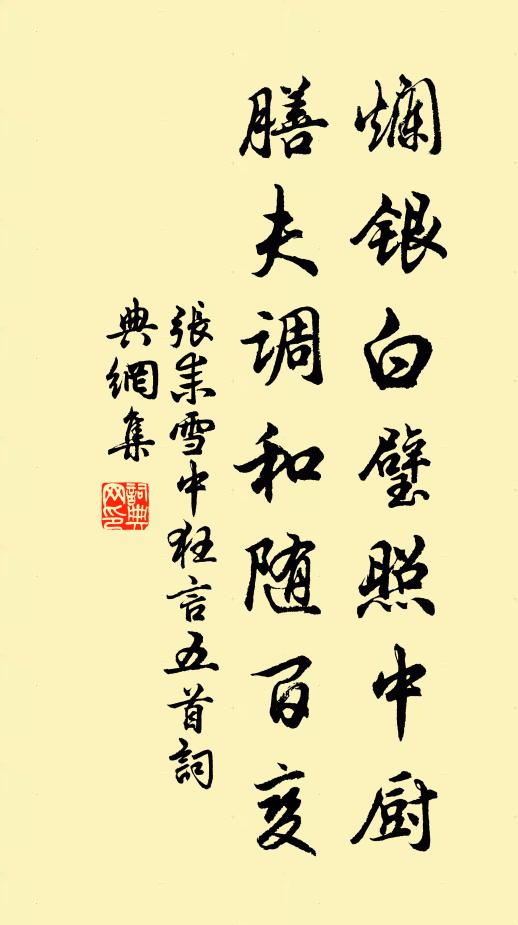 爛銀白璧照中厨
膳夫調和随百变
張耒雪中狂言五首詞
典網集
詞典网印